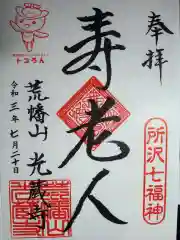 奉拝
所沢七福神
寿老人
トコろん
荒幡山 光蔵寺
令和三年七月二十日